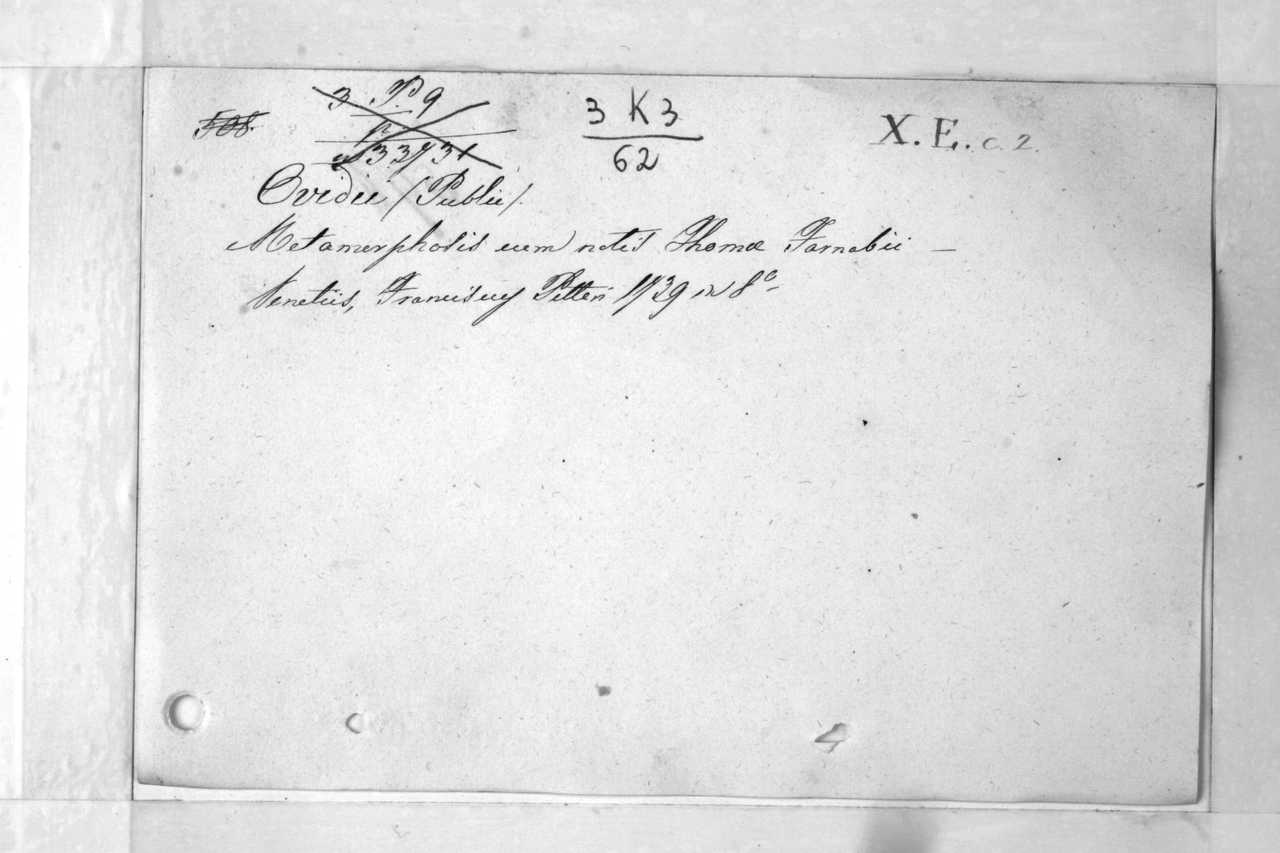 508.
3 K 3
62
X. E. c. 2.
Ovidii (Publii).
Metamorphosis cum notis Thomæ Farnabii —
Venetiis, Franciscus Pitteri 1739 in 8°-
4